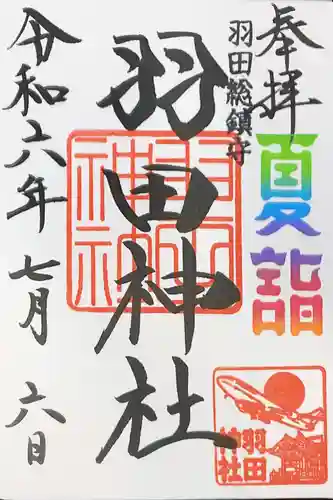 奉拝
夏詣
羽田総鎮守
羽田神社
令和六年 七月 六日
羽田神社
羽田
神社